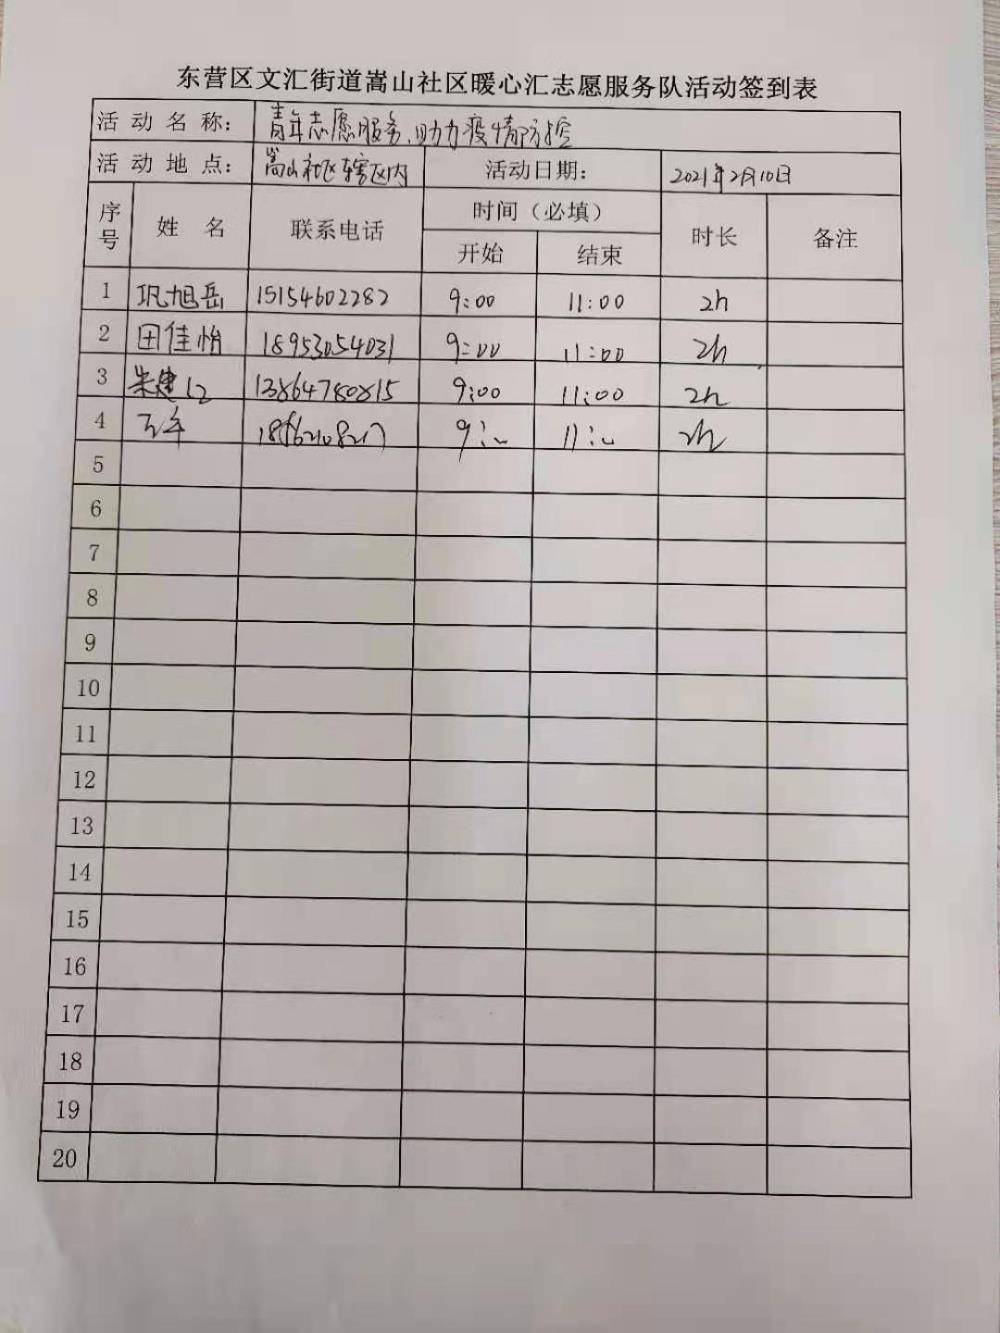 东营区文汇街道嵩山社区暖心汇志愿服务队活动签到表
活动名称： 青年志愿服务、助力疫情防控
活动地点： 嵩山社区辖区内 活动日期： 2021年2月10日
序号 姓 名 联系电话 时间（必填） 时长 备注
开始 结束
1 巩旭岳 15154602282 9:00 11:00 2h
2 田佳怡 18953054031 9:00 11:00 2h
3 朱建 13864780815 9:00 11:00 2h
4 9: 11: 2h
5
6
7
8
9
10
11
12
13
14
15
16
17
18
19
20